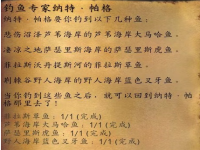 钓鱼专家纳特·帕格
纳特·帕格要你钓到以下几种鱼：
悲伤沼泽芦苇海岸的芦苇海岸大马哈鱼。
凄凉之地萨瑟里斯海岸的萨瑟里斯虎鱼。
菲拉斯沃丹提斯河的菲拉斯草鱼。
荆棘谷野人海岸的野人海岸蓝色叉牙鱼。
当你钓到这些鱼之后，就可以回到纳特·帕格那里去了！
菲拉斯草鱼：1/1 (完成)
芦苇海岸大马哈鱼：1/1 (完成)
萨瑟里斯虎鱼：1/1 (完成)
野人海岸蓝色叉牙鱼：1/1 (完成)